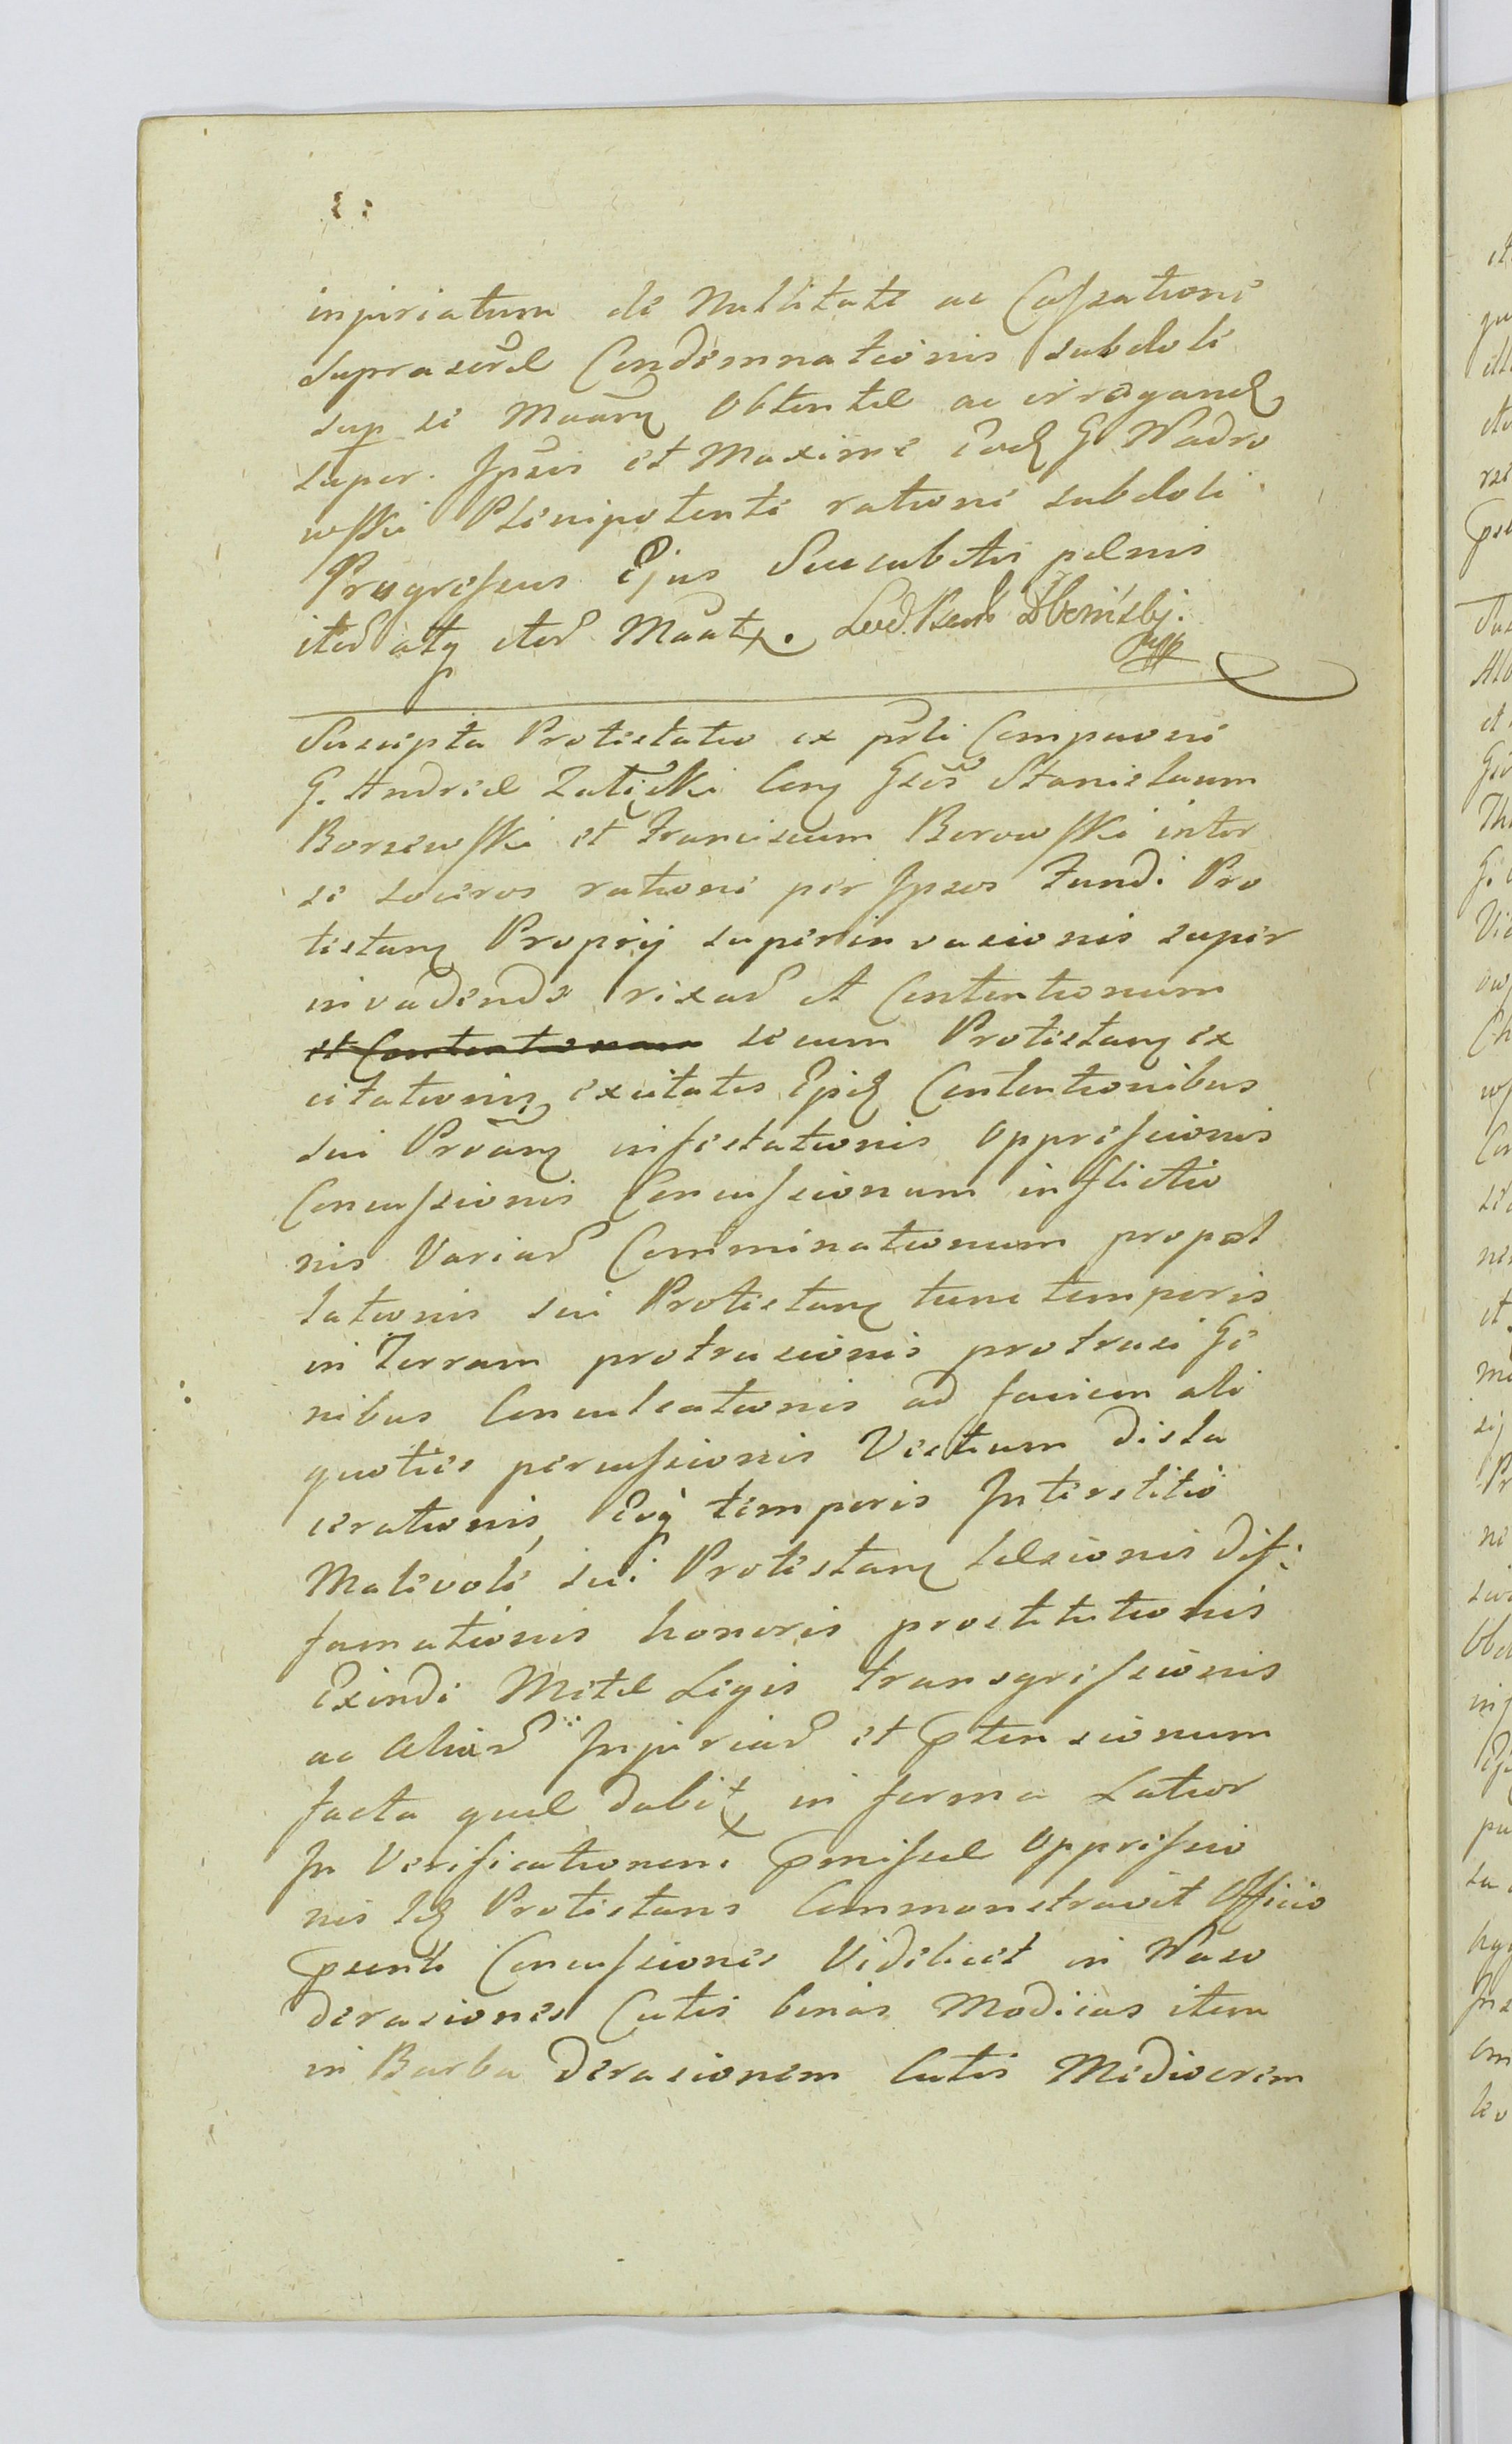 injuriatum de Nullitate ac Cassatione
suprascrae Condemnationis subdole
sup se Maan obtentae ac irrogand
super Ipsis et Maxime Eod G. Nadro
wski Plenipotente ratione subdoli
Progressus Ejus Succubitis poenis
iterū atq iterū Maatx.
Suscepta Protestatio ex prti Comparone
G. Andreae Zaleski Conq Gsos Stanislaum
Borzewski et Franciscum Borowski inter
se soceros ratione per Ipsos Fundi Pro
testanq Proprij superinvasionis super
invadendo rixarū et Contentionum
et Contentionum secum Protestanq ex
citationis, excitatis Ejsq Contentionibus
sui Proanq infestationis oppressionis
Concussionis Concussionum inflictio
nis Variarū Comminationum propal
lationis sui Protestanq tunc temporis
in Terram protrusionis protrusi Ge
nibus Conculcationis ad faciem ali
quoties percussionis Vestium dila
cerationis, Eoq temporis Interstitio
Malevole sui Protestanq laesionis dif:
famationis honoris prostitutionis
Exinde Metae Legis transgressionis
ac Aliarū Injuriarū et ptensionum
facta quae dabitx in forma Latior
In Verificationem pmissae oppressio
nis Idq Protestans Commonstravit Officio
psenti Concussiones Videlicet in Naso
derasiones Cutis binas Modicas item
in Barba derasionem Cutis Mediocrem